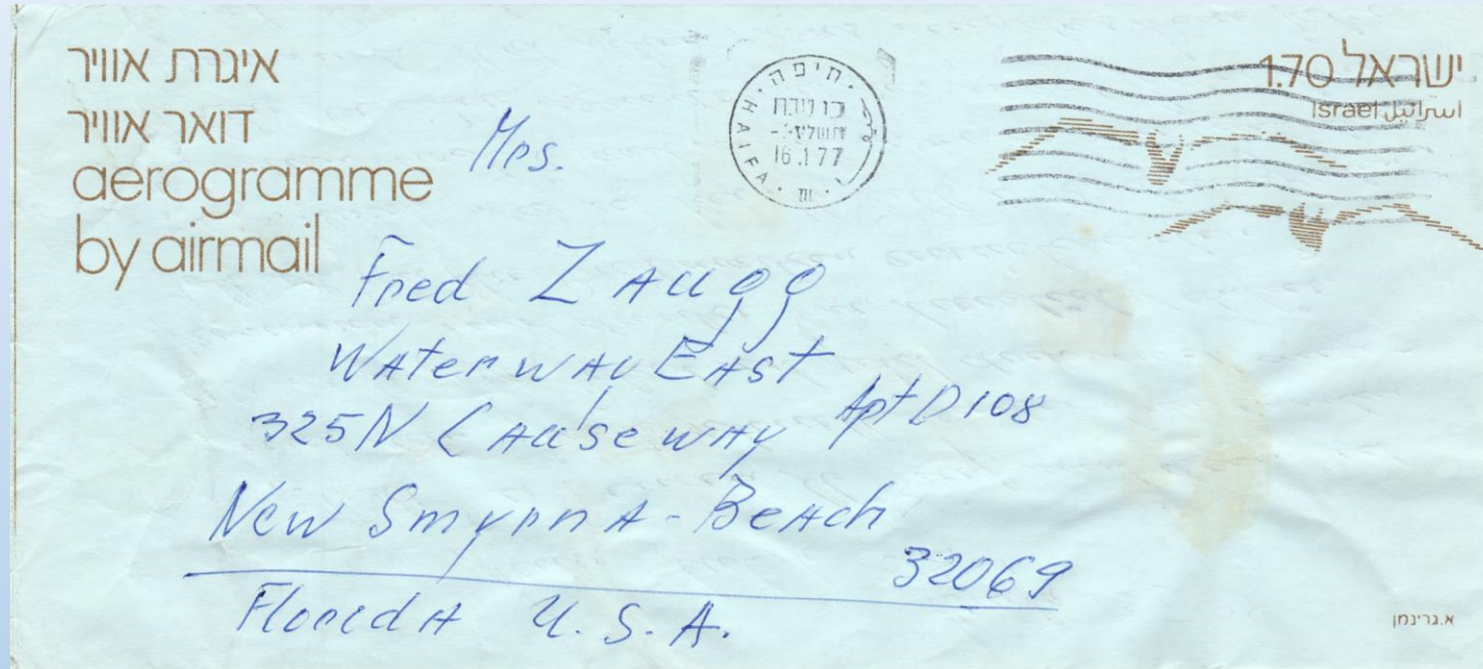 איגרת אוויר
דואר אוויר
aerogramme
by airmail
חיפה
16.1.77
HAIFA
ישראל 1.70
اسرائيل Israel
Mrs.
Fred Zaugg
Waterway East
325N Causeway Apt D108
New Smyrna-Beach
32069
Florida U.S.A.
א.גרינמן